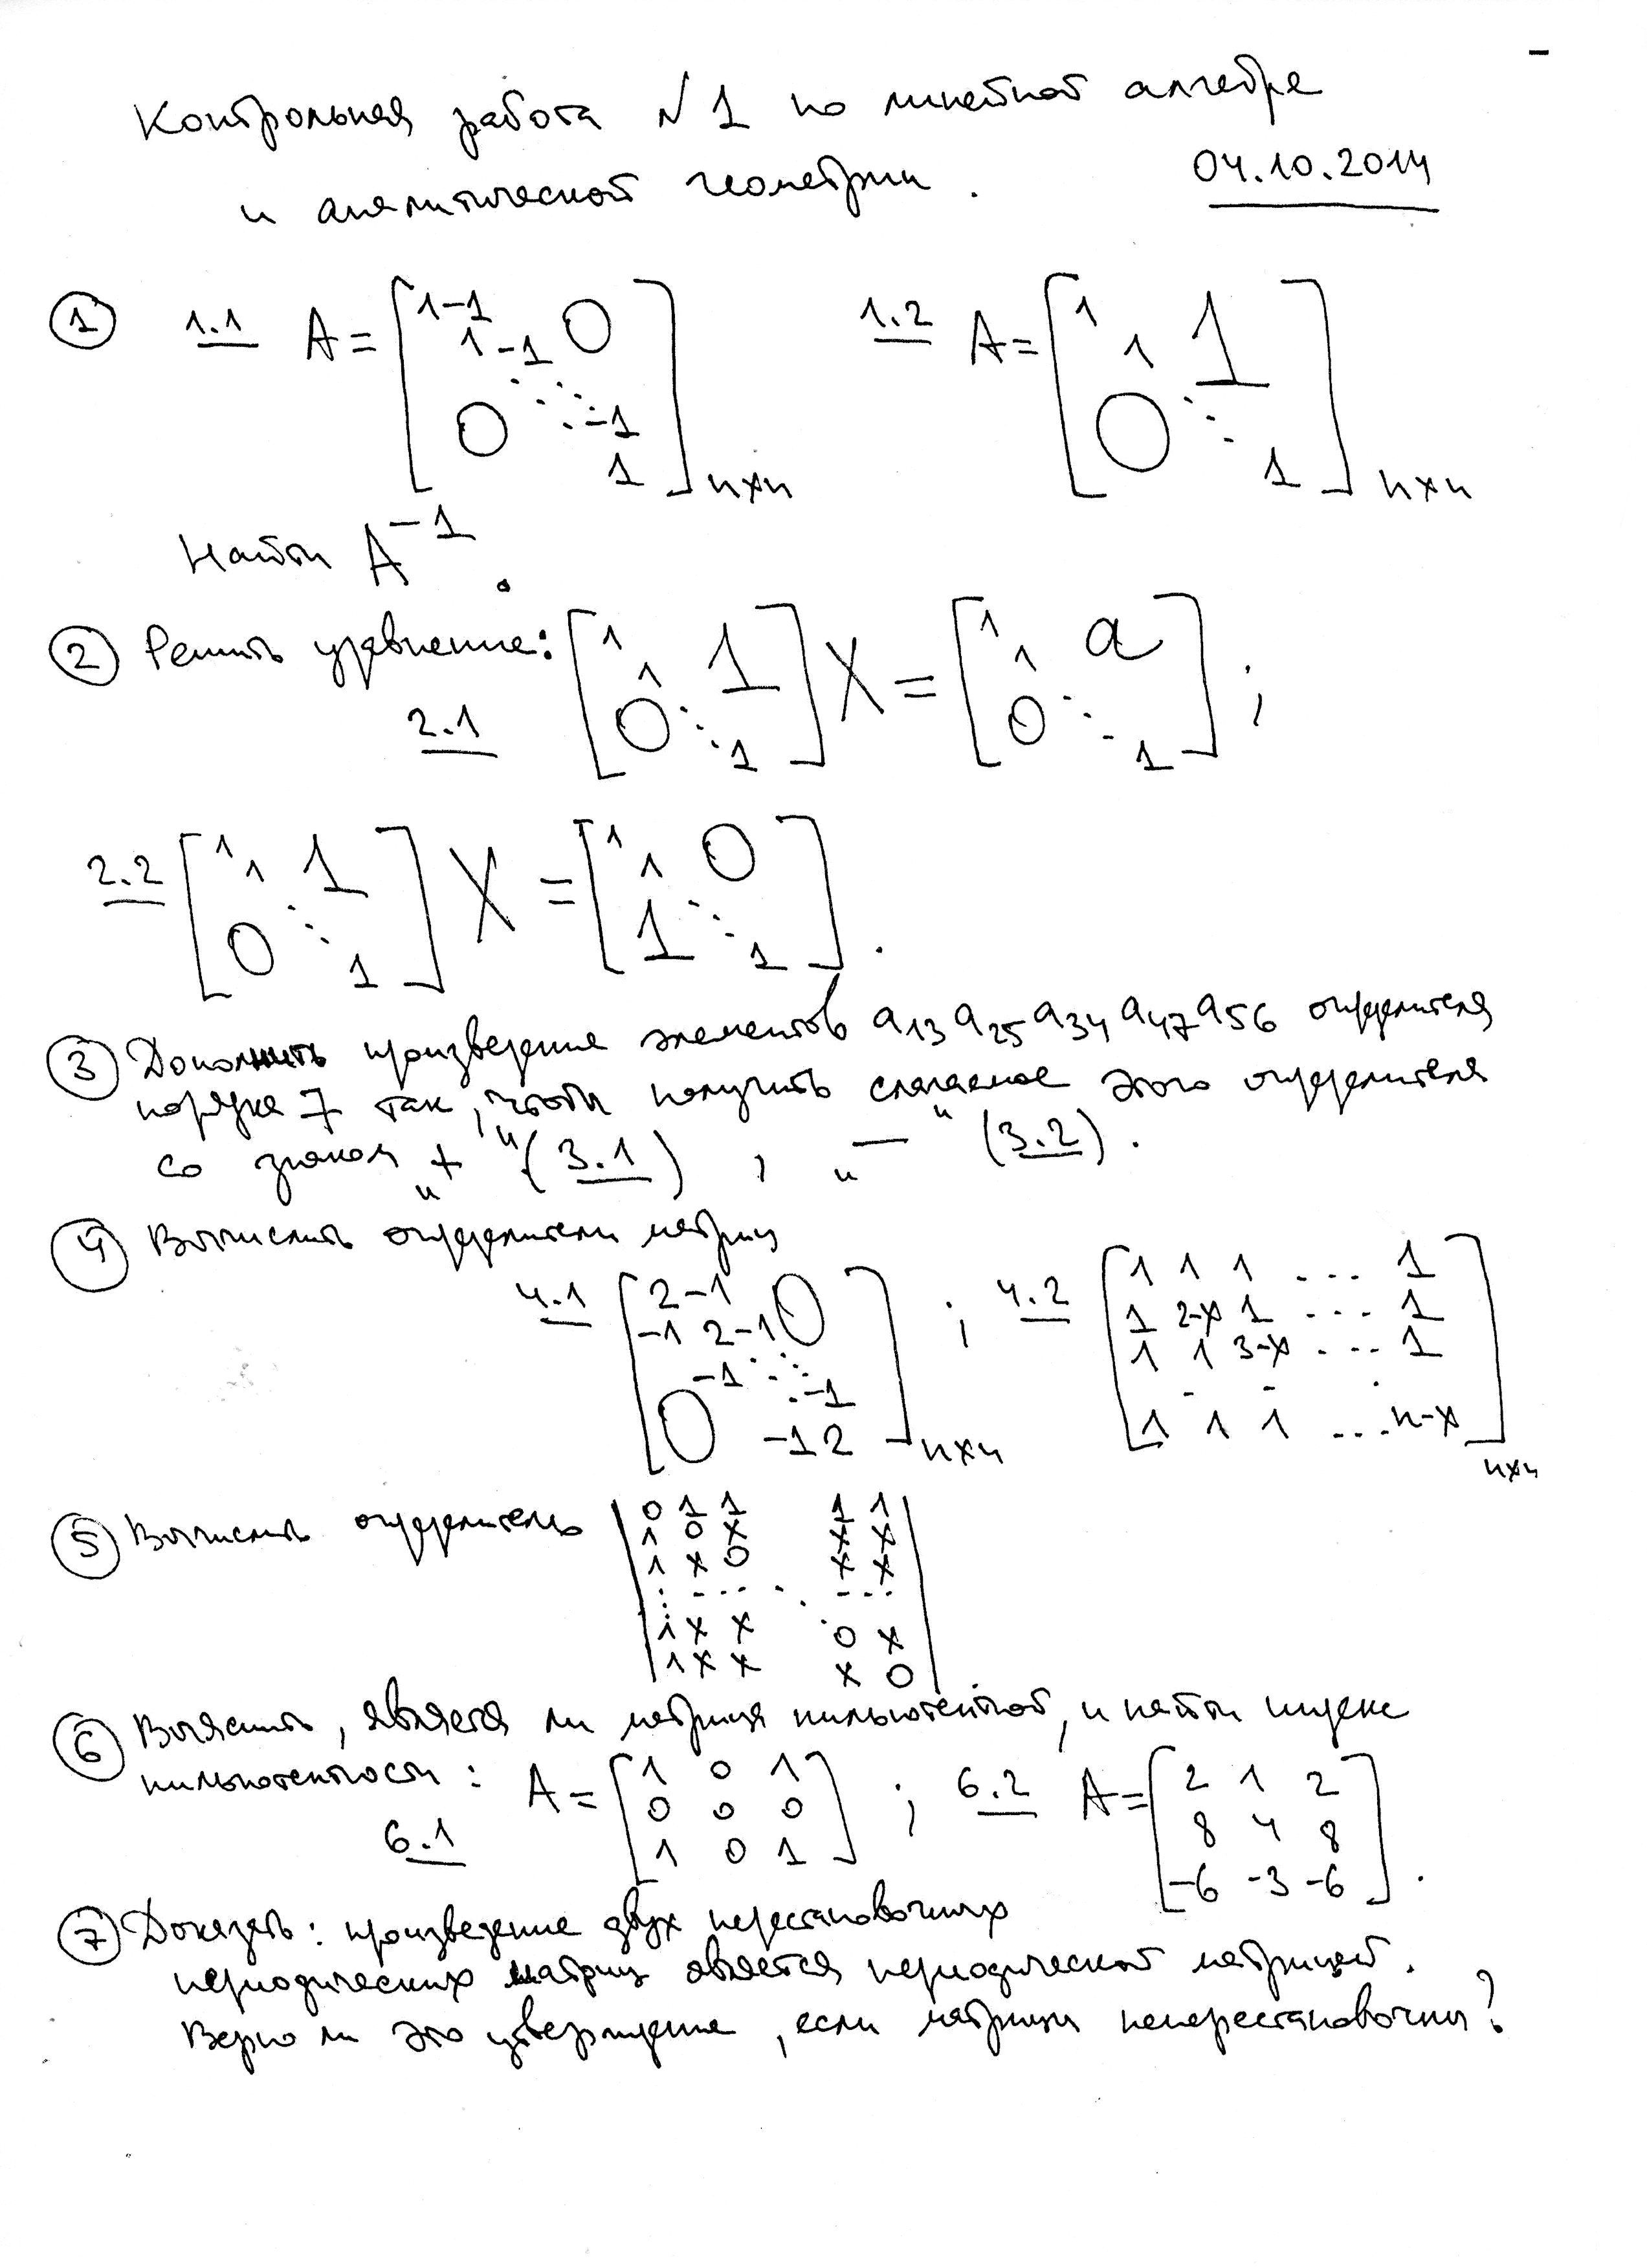 Контрольная работа №1 по линейной алгебре
и аналитической геометрии. 04.10.2014
① 1.1 A = [1 -1 0; 1 -1; 0 ⋱ ⋱ -1; 1] n×n 1.2 A = [1 1 1; 0 ⋱ 1] n×n
Найти A⁻¹.
② Решить уравнение: 2.1 [1 1 1; 0 ⋱ 1] X = [1 1 a; 0 ⋱ 1];
2.2 [1 1 1; 0 ⋱ 1] X = [1 1 0; 1 ⋱ 1].
③ Дополнить произведение элементов a₁₃a₂₅a₃₄a₄₇a₅₆ определителя
порядка 7 так, чтобы получить слагаемое этого определителя
со знаком „+“ (3.1), „—“ (3.2).
④ Вычислить определители матриц
4.1 [2 -1 0; -1 2 -1; -1 ⋱ ⋱ -1; 0 -1 2] n×n; 4.2 [1 1 1 ... 1; 1 2-x 1 ... 1; 1 1 3-x ... 1; - - .; 1 1 1 ... n-x] n×n
⑤ Вычислить определитель
|0 1 1 1 1|
|1 0 x x x|
|1 x 0 x x|
|: - ... . - ...|
|1 x x 0 x|
|1 x x x 0|
⑥ Выяснить, является ли матрица нильпотентной, и найти индекс
нильпотентности: 6.1 A = [1 0 1; 0 0 0; 1 0 1]; 6.2 A = [2 1 2; 8 4 8; -6 -3 -6].
⑦ Доказать: произведение двух перестановочных
периодических матриц является периодической матрицей.
Верно ли это утверждение, если матрицы неперестановочны?